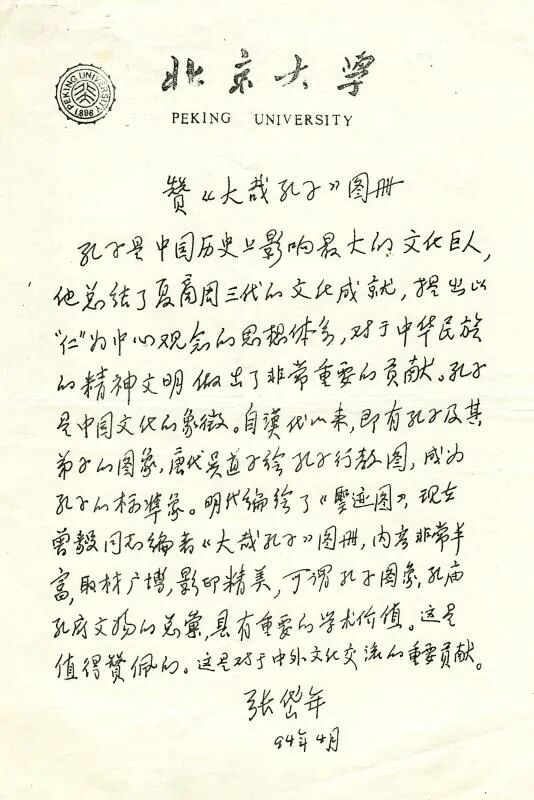 北京大学
PEKING UNIVERSITY
PEKING UNIVERSITY
1898
赞《大哉孔子》图册
孔子是中国历史上影响最大的文化巨人，
他总结了夏商周三代的文化成就，提出以
“仁”为中心观念的思想体系，对于中华民族
的精神文明做出了非常重要的贡献。孔子
是中国文化的象徵。自漢代以来，即有孔子及其
弟子的图象，唐代吴道子绘孔子行教图，成为
孔子的标準象。明代编绘了《聖迹图》，现在
曾毅同志编著《大哉孔子》图册，内容非常丰
富，取材广博，影印精美，可谓孔子图象，孔庙
孔府文物的总彙，具有重要的学术价值。这是
值得赞佩的。这是对于中外文化交流的重要贡献。
张岱年
94年4月